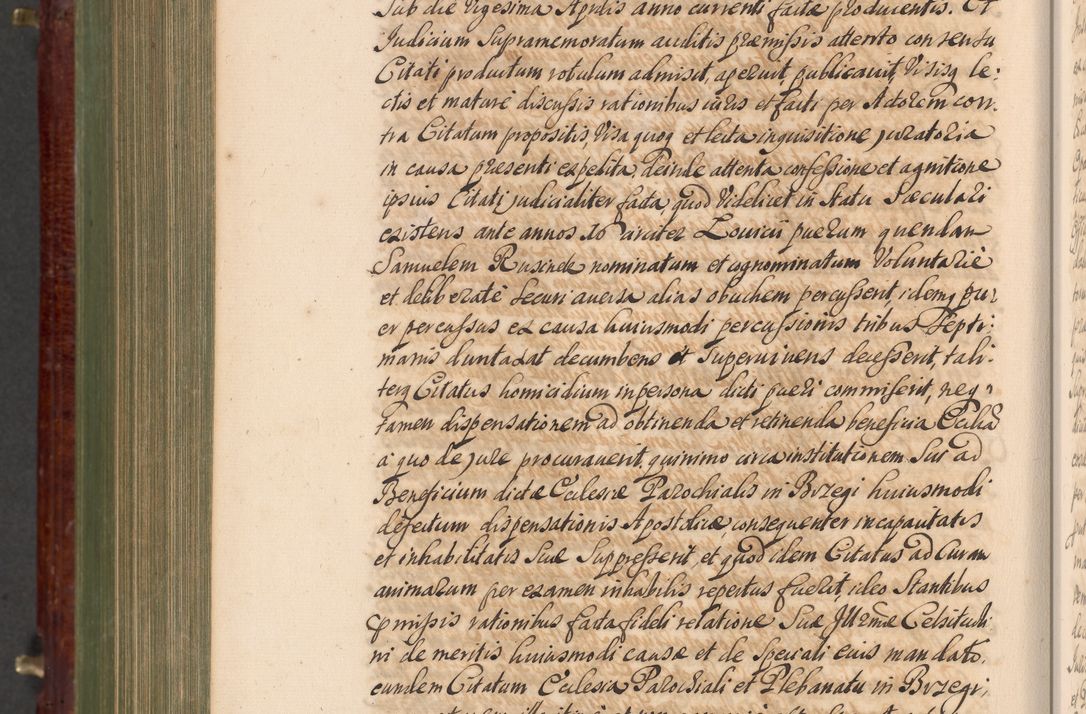 Sub die Vigesima Aprilis anno currenti factæ producentis. Et
Judicium Supramemoratum auditis præmissis attento consensu
Citati productum rotulum admisit, aperuit publicauit, Visisq le:
ctis et maturè discussis rationibus iuris et facti per Actorem con:
tra Citatum propositis, Visa quoq et lecta inquisitione juratoria
in causa præsenti expedita, deinde attenta confessione et agnitione
ipsius Citati judicialiter facta, quod Videlicet in Statu Sæculari
existens ante annos 16 circiter Louicii puerum quendam
Samuelem nominatum et cognominatum Voluntariè
et deliberatè Securi auersa alias obuchem percusserit, idemq pu:
er percussus ex causa huiusmodi percussionis tribus Septi:
manis duntaxat decumbens et Superuiuens decesserit, tali:
terq Citatus homicidium in persona dicti pueri commiserit, neq
tamen dispensationem ad obtinenda et retinenda beneficia Ecclia
a quo de jure procurauerit, quinimo circa institutionem Sui ad
Beneficium dictæ Ecclesiæ Parochialis in Brzegi huiusmodi
defectum dispensationis Apostolicæ, consequenter incapacitatis
et inhabilitatis Suæ Suppresserit, et quod idem Citatus ad Curam
animarum per examen inhabilis repertus fuerit, ideo Stantibus
præmissis rationibus facta fideli relatione Suæ Illrmæ Celsitudi
ni de meritis huiusmodi causæ et de Speciali eius mandato,
eundem Citatum Ecclesia Parochiali et Plebanatu in Brzegi,